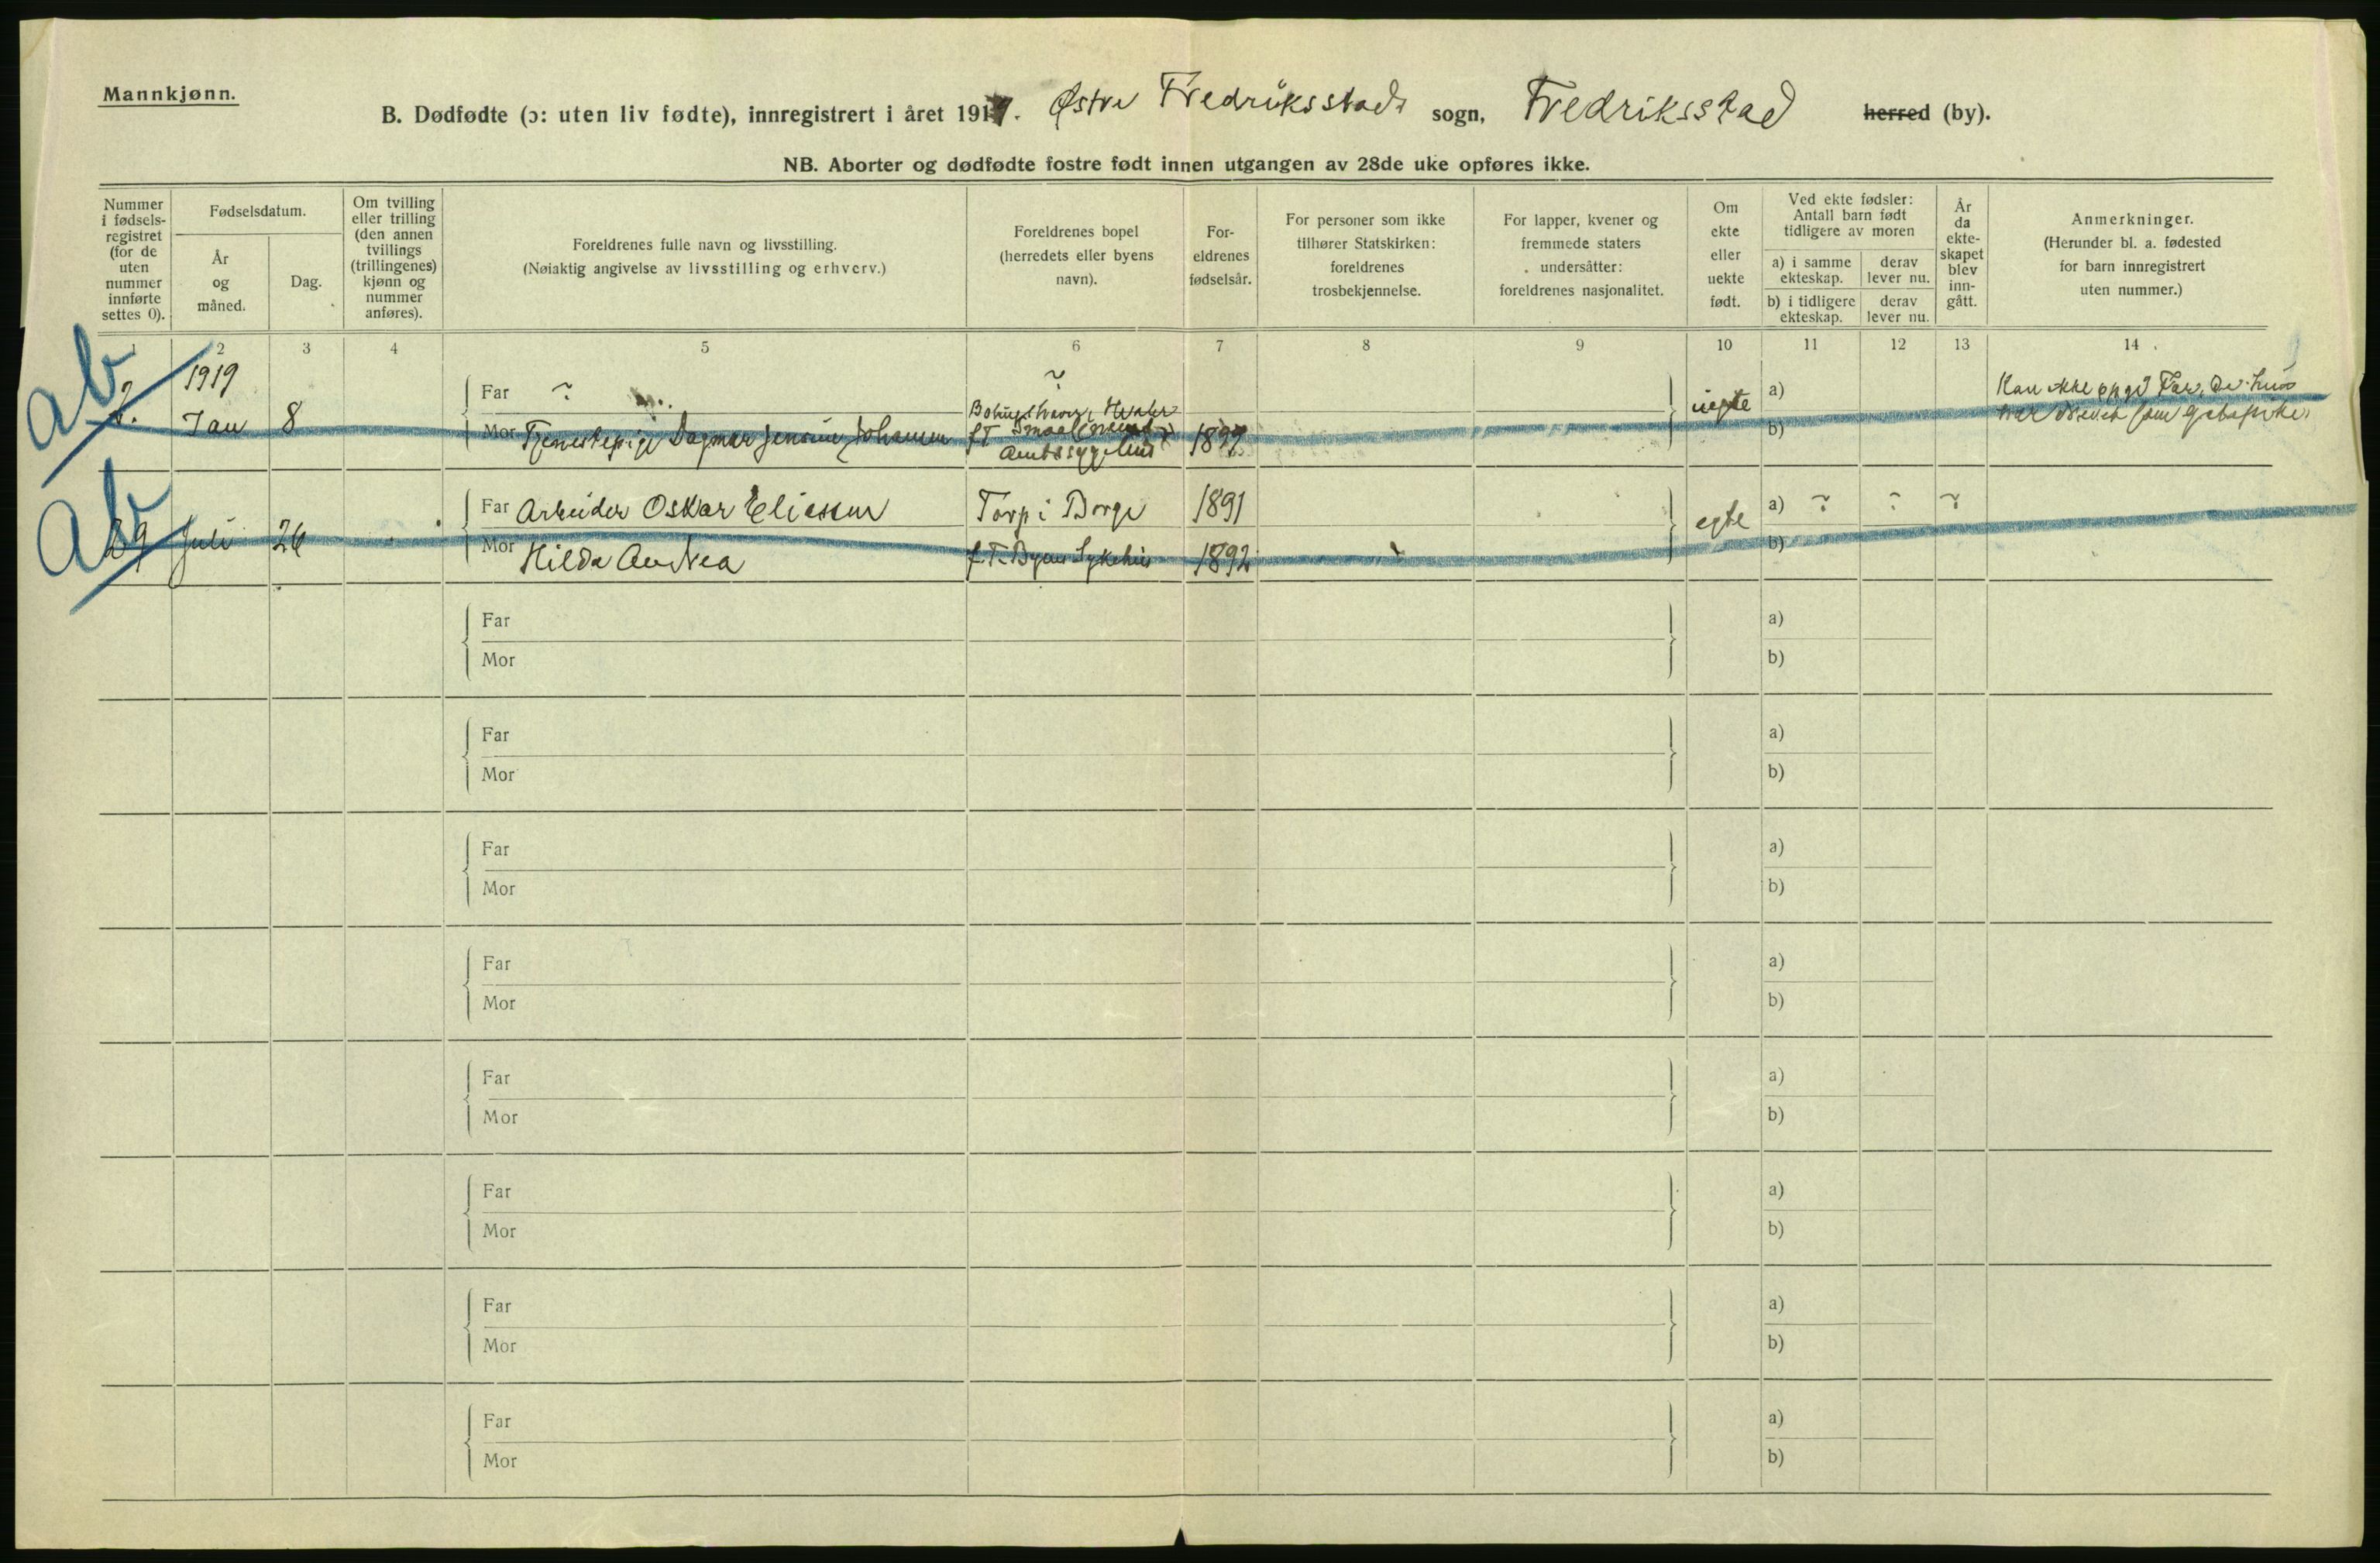 Mannkjønn.
B. Dødfødte (ɔ: uten liv fødte), innregistrert i året 1919. Østre Fredriksstads sogn, Fredriksstad herred (by).
NB. Aborter og dødfødte fostre født innen utgangen av 28de uke opføres ikke.
Nummer i fødsels-registret (for de uten nummer innførte settes 0).
Fødselsdatum.
År og måned.
Dag.
Om tvilling eller trilling (den annen tvillings (trillingenes) kjønn og nummer anføres).
Foreldrenes fulle navn og livsstilling.
(Nøiaktig angivelse av livsstilling og erhverv.)
Foreldrenes bopel (herredets eller byens navn).
For-eldrenes fødselsår.
For personer som ikke tilhører Statskirken: foreldrenes trosbekjennelse.
For lapper, kvener og fremmede staters undersåtter: foreldrenes nasjonalitet.
Om ekte eller uekte født.
Ved ekte fødsler: Antall barn født tidligere av moren
a) i samme ekteskap.
derav lever nu.
b) i tidligere ekteskap.
derav lever nu.
År da ekte-skapet blev inn-gått.
Anmerkninger.
(Herunder bl. a. fødested for barn innregistrert uten nummer.)
1 2 3 4 5 6 7 8 9 10 11 12 13 14
ab
1919
Jan 8
Far ~ ~
Mor Tjenestepige Dagmar Jensine Johansen
Hvaler
f.T.
Amtssygehus
1897
uegte
a)
b)
Kan ikke opgi Far, De hus
Ab
29 Juli 26
Far Arbeider Oskar Eliassen Torp i Borge 1891
Mor Hilda Andrea f.T. Byens Sykehus 1892
egte
a) ~ ~ ~
b)
Far a)
Mor b)
Far a)
Mor b)
Far a)
Mor b)
Far a)
Mor b)
Far a)
Mor b)
Far a)
Mor b)
Far a)
Mor b)
Far a)
Mor b)